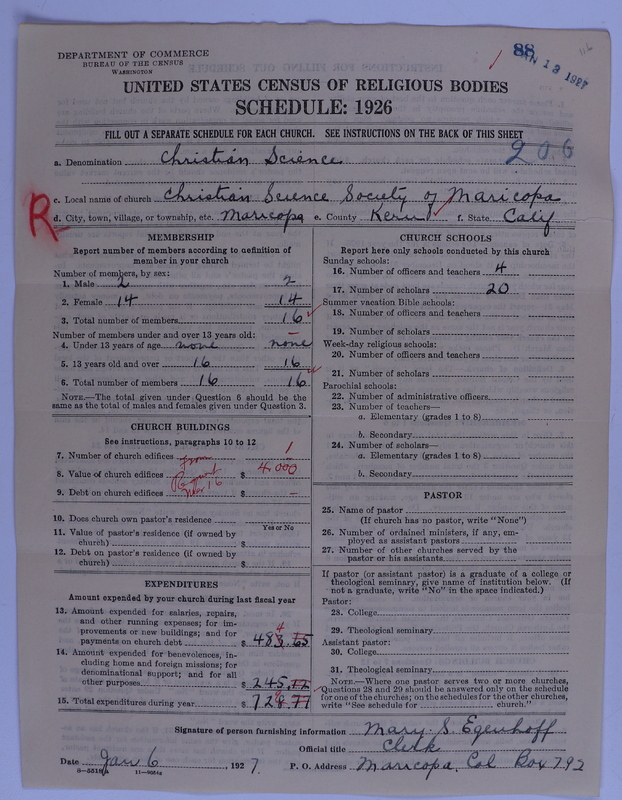 DEPARTMENT OF COMMERCE
BUREAU OF THE CENSUS
WASHINGTON
88
JAN 13 1927
UNITED STATES CENSUS OF RELIGIOUS BODIES
SCHEDULE: 1926
FILL OUT A SEPARATE SCHEDULE FOR EACH CHURCH. SEE INSTRUCTIONS ON THE BACK OF THIS SHEET
206
a. Denomination Christian Science
c. Local name of church Christian Science Society of Maricopa
R
d. City, town, village, or township, etc. Maricopa e. County Kern f. State Calif
MEMBERSHIP
Report number of members according to definition of
member in your church
Number of members, by sex:
1. Male 2 2
2. Female 14 14
3. Total number of members 16
Number of members under and over 13 years old:
4. Under 13 years of age none none
5. 13 years old and over 16 16
6. Total number of members 16 16
NOTE.—The total given under Question 6 should be
same as the total of males and females given under Question 3.
CHURCH BUILDINGS
See instructions, paragraphs 10 to 12
7. Number of church edifices from 1
8. Value of church edifices $ 4,000
9. Debt on church edifices $ –
10. Does church own pastor's residence
Yes or No
11. Value of pastor's residence (if owned by
church) $
12. Debt on pastor's residence (if owned by
church) $
EXPENDITURES
Amount expended by your church during last fiscal year
13. Amount expended for salaries, repairs,
and other running expenses; for im-
provements or new buildings; and for
payments on church debt $ 483.65
4
14. Amount expended for benevolences, in-
cluding home and foreign missions; for
denominational support; and for all
other purposes $ 245.12
15. Total expenditures during year $ 728.77
CHURCH SCHOOLS
Report here only schools conducted by this church
Sunday schools:
16. Number of officers and teachers 4
17. Number of scholars 20
Summer vacation Bible schools:
18. Number of officers and teachers
19. Number of scholars
Week-day religious schools:
20. Number of officers and teachers
21. Number of scholars
Parochial schools:
22. Number of administrative officers
23. Number of teachers—
a. Elementary (grades 1 to 8)
b. Secondary
24. Number of scholars—
a. Elementary (grades 1 to 8)
b. Secondary
PASTOR
25. Name of pastor
(If church has no pastor, write "None")
26. Number of ordained ministers, if any, em-
ployed as assistant pastors
27. Number of other churches served by the
pastor or his assistants
If pastor (or assistant pastor) is a graduate of a college or
theological seminary, give name of institution below. (If
not a graduate, write "No" in the space indicated.)
Pastor:
28. College
29. Theological seminary
Assistant pastor:
30. College
31. Theological seminary
NOTE.—Where one pastor serves two or more churches,
Questions 28 and 29 should be answered only on the schedule
for one of the churches; on the schedules for the other churches,
write "See schedule for church."
Signature of person furnishing information Mary S. Egenhoff
Official title Clerk
Date Jan 6, 1927. P. O. Address Maricopa, Cal Box 792
11—9084a